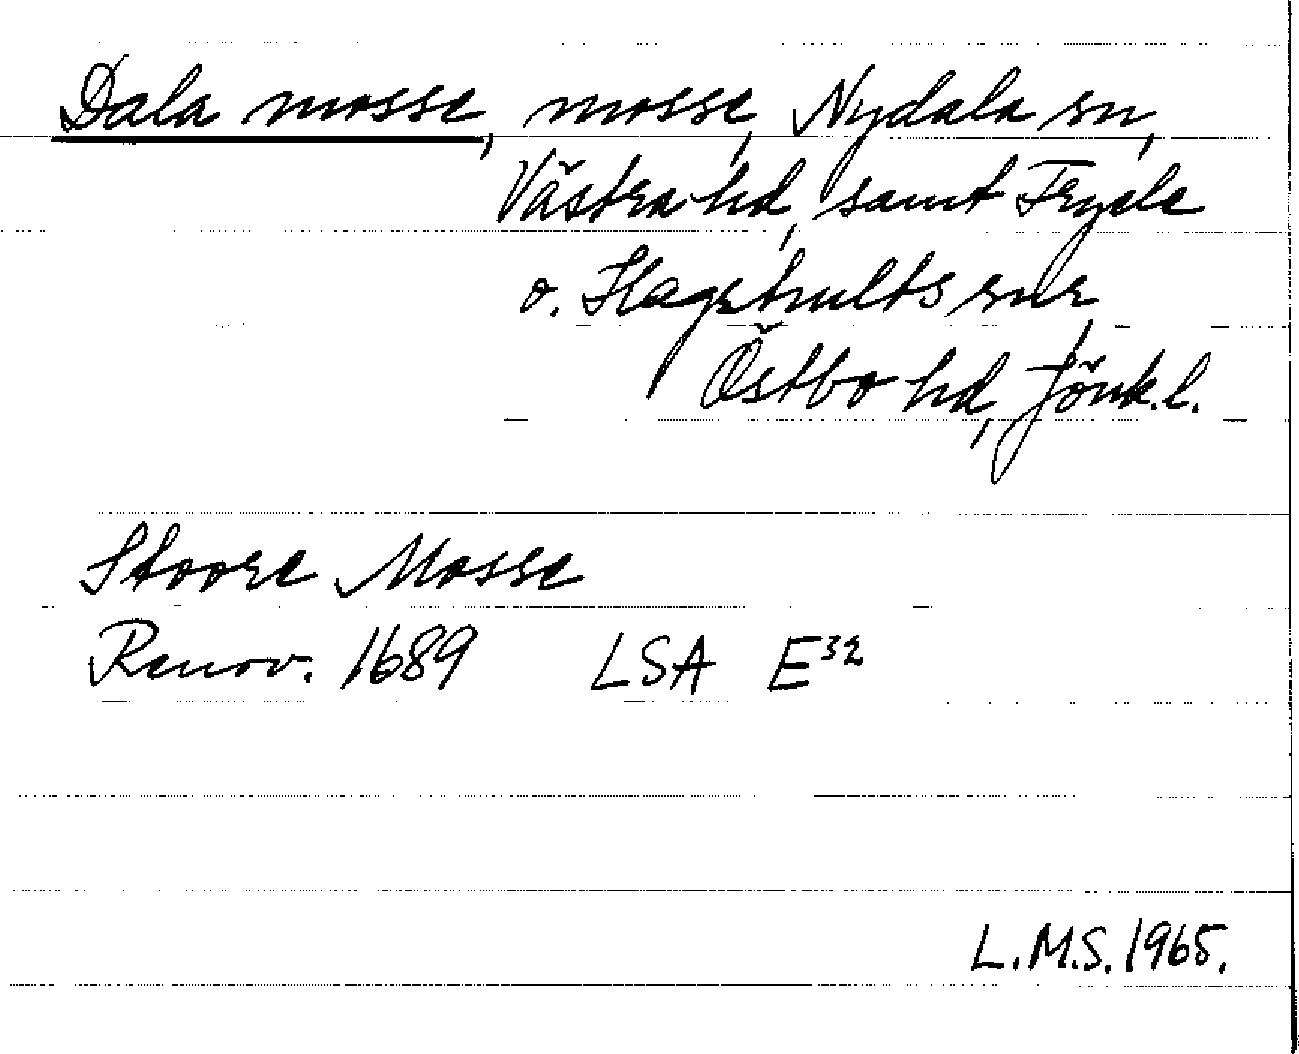 Dala mosse, mosse, Nydala sn,
Västra hd, samt Fryele
o. Hagshults snr,
Östbo hd, Jönk.l.
Stoore Mosse
Renov. 1689 LSA E³²
L.M.S. 1965.